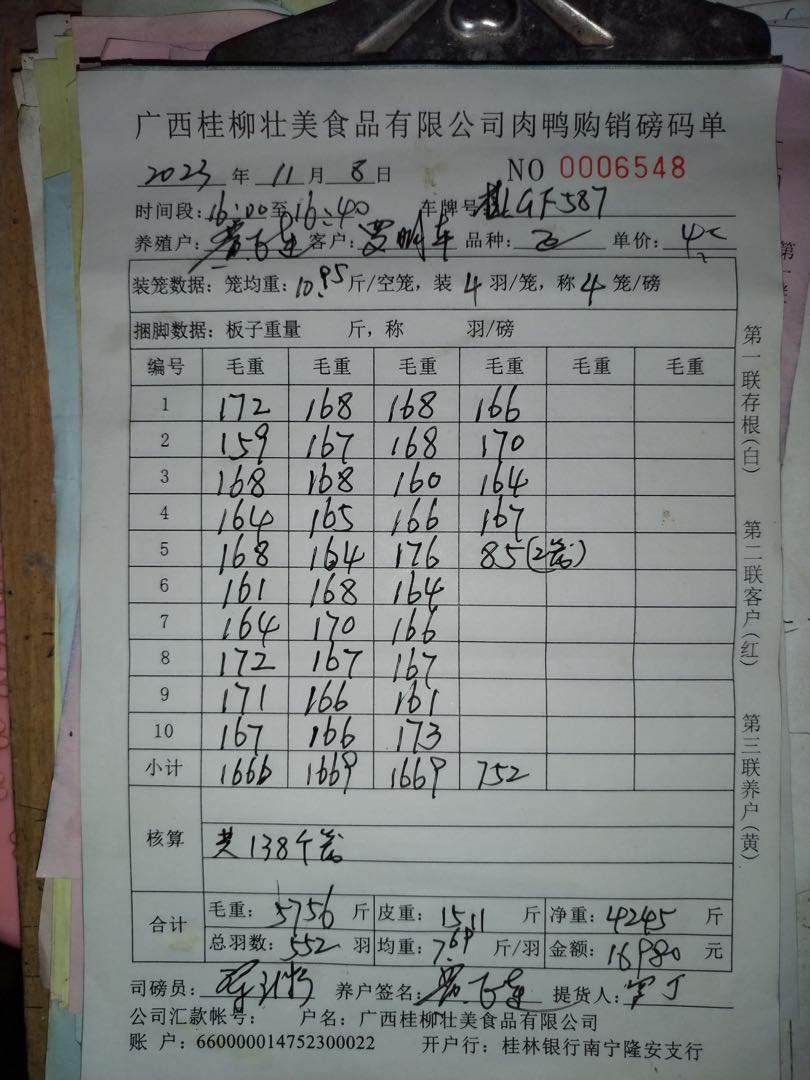 广西桂柳壮美食品有限公司肉鸭购销磅码单
2023 年 11 月 8 日 NO 0006548
时间段: 16:00至16:40 车牌号 桂LGF587
养殖户: 客户: 品种: 单价: 4
装笼数据: 笼均重: 10.95 斤/空笼, 装 4 羽/笼, 称 4 笼/磅
捆脚数据: 板子重量 斤, 称 羽/磅
编号 毛重 毛重 毛重 毛重 毛重 毛重
1 172 168 168 166
2 159 167 168 170
3 168 168 160 164
4 164 165 166 167
5 168 164 176 85(2笼)
6 161 168 164
7 164 170 166
8 172 167 167
9 171 166 161
10 167 166 173
小计 1666 1669 1669 752
核算 共138个笼
合计 毛重: 5756 斤 皮重: 1511 斤 净重: 4245 斤
总羽数: 552 羽 均重: 7.69 斤/羽 金额: 16980 元
司磅员: 养户签名: 提货人:
公司汇款帐号: 户名: 广西桂柳壮美食品有限公司
账 户: 660000014752300022 开户行: 桂林银行南宁隆安支行
第一联存根(白)
第二联客户(红)
第三联养户(黄)